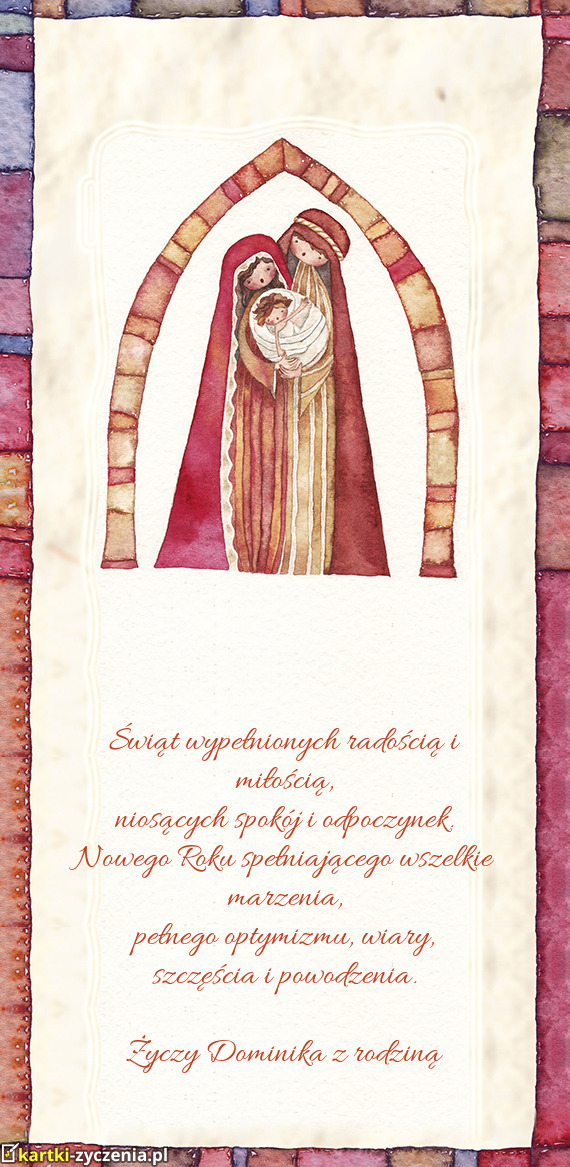 Świąt wypełnionych radością i
miłością,
niosących spokój i odpoczynek.
Nowego Roku spełniającego wszelkie
marzenia,
pełnego optymizmu, wiary,
szczęścia i powodzenia.
Życzy Dominika z rodziną
kartki-zyczenia.pl